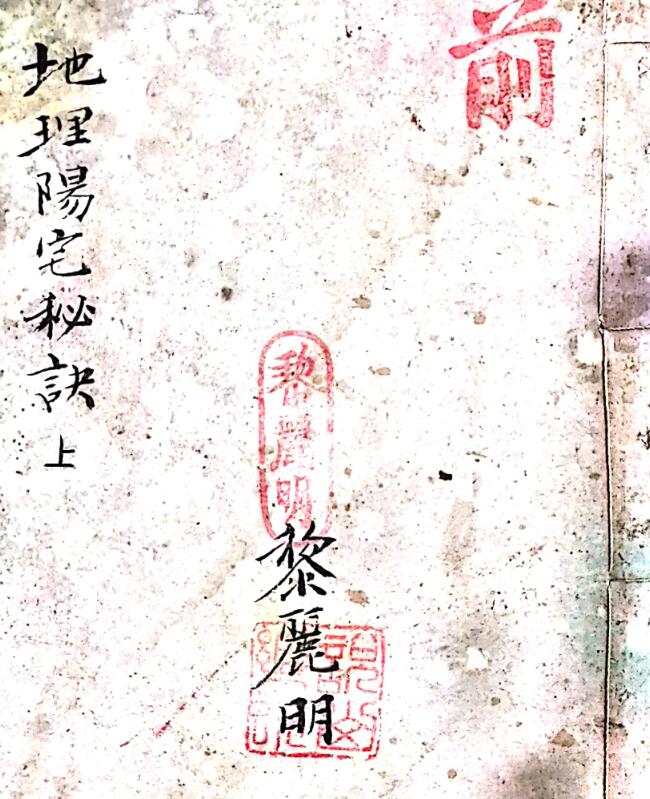 前
黎麗明
黎麗明
地理陽宅秘訣上